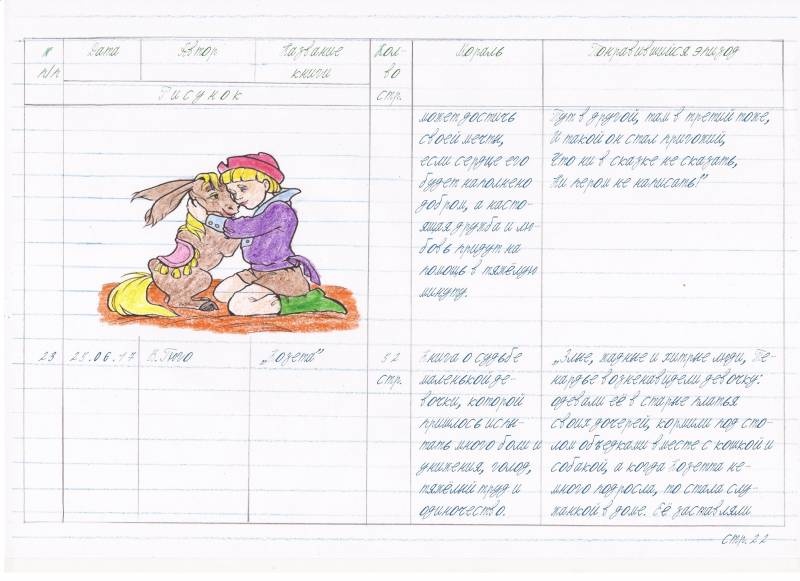 № п/п
Дата
Автор
Название книги
Кол-во стр.
Мораль
Понравившийся эпизод
Рисунок
может достичь
своей мечты,
если сердце его
будет наполнено
добром, а насто-
ящая дружба и лю-
бовь придут на
помощь в тяжёлую
минуту.
Бух в другой, там в третий тоже,
И такой он стал пригожий,
Что ни в сказке не сказать,
Ни пером не написать!"
23
25.06.17
В. Гюго
„Козета"
52
стр.
Книга о судьбе
маленькой де-
вочки, которой
пришлось испы-
тать много боли и
унижения, голод,
тяжёлый труд и
одиночество.
„Злые, жадные и хитрые люди, Те-
нардье возненавидели девочку:
одевали её в старые платья
своих дочерей, кормили под сто-
лом объедками вместе с кошкой и
собакой, а когда Козетта не-
много подросла, то стала слу-
жанкой в доме. Её заставляли
стр. 22